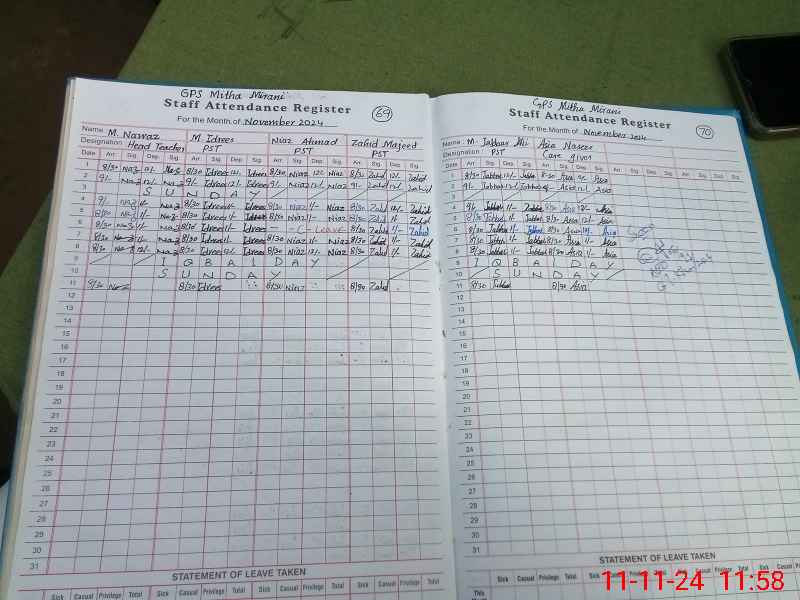 GPS Mitha Mirani
Staff Attendance Register
69
For the Month of November 2024
Name M. Nawaz M Idrees Niaz Ahmad Zahid Majeed
Designation Head Teacher PST PST PST
Date Arr Sig. Dep Sig. Arr Sig. Dep Sig. Arr Sig. Dep Sig. Arr Sig. Dep Sig.
1 8/30 Naz 12/- Naz 8/30 Idrees 12/- Idrees 8/30 Niaz 12/- Niaz 8/30 Zahid 12/- Zahid
2 9/- Naz 12/- Naz 9/- Idrees 12/- Idrees 9/- Niaz 12/- Niaz 9/- Zahid 12/- Zahid
3 SUNDAY
4 9/- Naz 1/- Naz 8/30 Idrees 1/- Idrees 8/30 Niaz 1/- Niaz 8/30 Zahid 1/- Zahid
5 8/30 Naz 1/- Naz 8/30 Idrees 1/- Idrees 8/30 Niaz 1/- Niaz 8/30 Zahid 1/- Zahid
6 8/30 Naz 1/- Naz 8/30 Idrees 1/- Idrees Leave 8/30 Zahid 1/- Zahid
7 8/30 Naz 1/- Naz 8/30 Idrees 1/- Idrees 8/30 Niaz 1/- Niaz 8/30 Zahid 1/- Zahid
8 8/30 Naz 1/- Naz 8/30 Idrees 1/- Idrees 8/30 Niaz 1/- Niaz 8/30 Zahid 1/- Zahid
9 IQBAL DAY
10 SUNDAY
11 8/30 Naz 8/30 Idrees 8/30 Niaz 8/30 Zahid
12
13
14
15
16
17
18
19
20
21
22
23
24
25
26
27
28
29
30
31
STATEMENT OF LEAVE TAKEN
Sick Casual Privilege Total Sick Casual Privilege Total Sick Casual Privilege Total Sick Casual Privilege Total
GPS Mitha Mirani
Staff Attendance Register
70
For the Month of November 2024
Name M. Jabbar Ali Asia Naseer
Designation PST Care giver
Date Arr Sig. Dep Sig. Arr Sig. Dep Sig. Arr Sig. Dep Sig. Arr Sig. Dep Sig.
1 8/30 Jabbar 12/- Jabbar 8/30 Asia 12/- Asia
2 9/- Jabbar 12/- Jabbar 9/- Asia 12/- Asia
3
4 9/- Jabbar 1/- Jabbar 8/30 Asia 12/- Asia
5 8/30 Jabbar 1/- Jabbar 8/30 Asia 12/- Asia
6 8/30 Jabbar 1/- Jabbar 8/30 Asia 1/- Asia
7 8/30 Jabbar 1/- Jabbar 8/30 Asia 1/- Asia
8 8/30 Jabbar 1/- Jabbar 8/30 Asia 1/- Asia
9 IQBAL DAY
10 SUNDAY
11 8/30 Jabbar 8/30 Asia
12
13
14
15
16
17
18
19
20
21
22
23
24
25
26
27
28
29
30
31
STATEMENT OF LEAVE TAKEN
Sick Casual Privilege Total Sick Casual Privilege Total
This
11-11-24 11:58